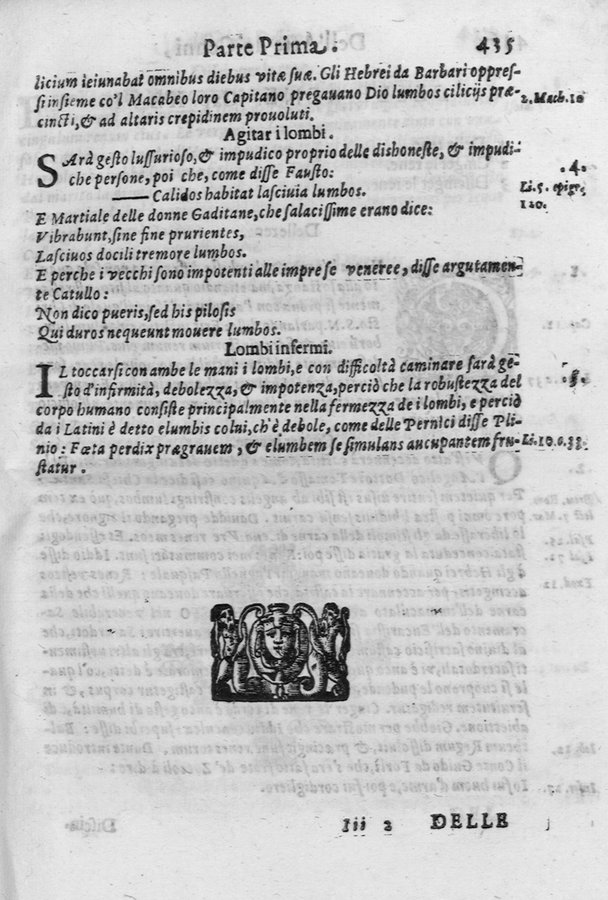 Parte Prima. 435
licium ieiunabat omnibus diebus vitæ suæ. Gli Hebrei da Barbari oppres-
si insieme co'l Macabeo loro Capitano pregauano Dio lumbos cilicijs præ- 2. Mach. 10
cincti, & ad altaris crepidinem prouoluti.
Agitar i lombi.
SArà gesto lussurioso, & impudico proprio delle dishoneste, & impudi- .4.
che persone, poi che, come disse Fausto:
Calidos habitat lasciuia lumbos. Li. 5. epigr.
E Martiale delle donne Gaditane, che salacissime erano dice: 120.
Vibrabunt, sine fine prurientes,
Lasciuos docili tremore lumbos.
E perche i vecchi sono impotenti alle imprese veneree, disse argutamen-
te Catullo:
Non dico pueris, sed his pilosis
Qui duros nequeunt mouere lumbos.
Lombi infermi.
IL toccarsi con ambe le mani i lombi, e con difficoltà caminare sarà ge- .5.
sto d'infirmità, debolezza, & impotenza, perciò che la robustezza del
corpo humano consiste principalmente nella fermezza de i lombi, e perciò
da i Latini è detto elumbis colui, ch'è debole, come delle Pernici disse Pli-
nio: Fœta perdix prægrauem, & elumbem se simulans aucupantem fru- Li. 10. c. 33.
statur.
Iii 2 DELLE